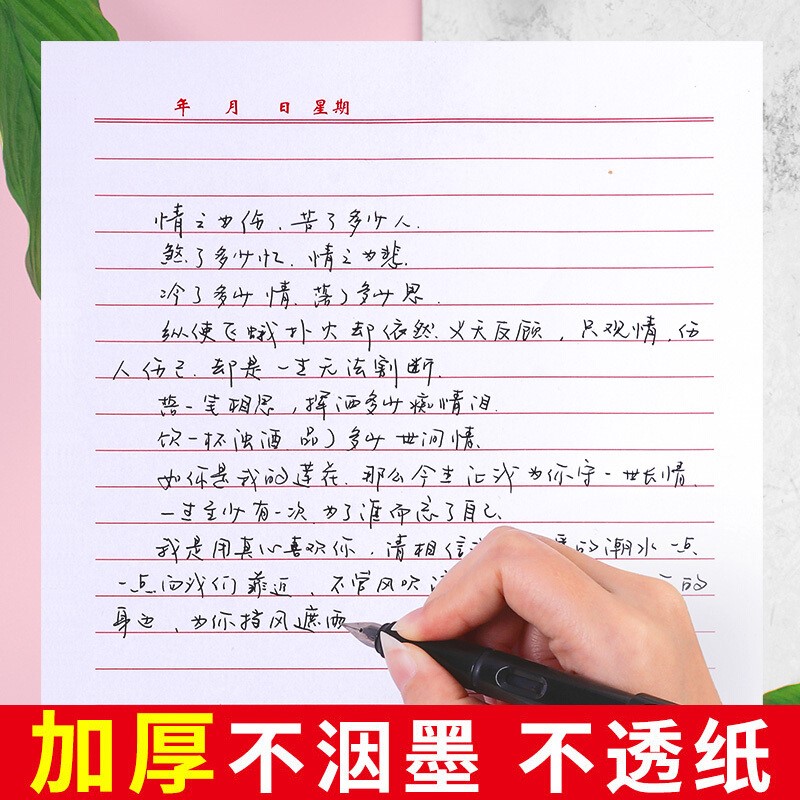 年 月 日 星期
情之为伤、苦了多少人.
煞了多少忆、情之为悲.
冷了多少情、落了多少思.
纵使飞蛾扑火却依然义无反顾，只观情，伤
人伤己、却是一生无法割断.
蘸一笔相思，挥洒多少痴情泪.
饮一杯浊酒、品了多少世间情.
如你是我的莲花、那么今生让我为你守一世长情.
一生至少有一次、为了谁而忘了自己.
我是用真心喜欢你，请相信 的潮水一点、
一点向我们靠近、不管风吹 的
身边、为你挡风遮雨
加厚不洇墨 不透纸